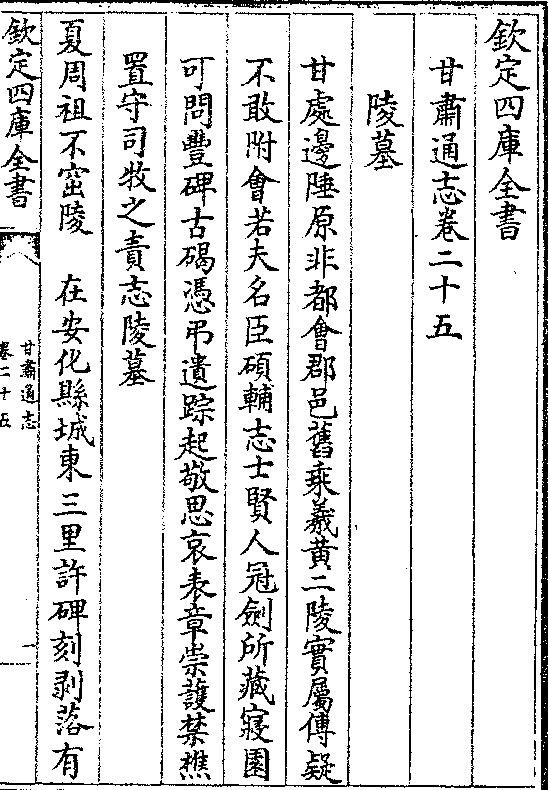 欽定四庫全書
甘肅通志卷二十五
陵墓
甘處邊陲原非都會郡邑舊乘羲黄二陵實屬傳疑
不敢附會若夫名臣碩輔志士賢人冠劍所藏寢園
可問豐碑古碣憑弔遺踪起敬思哀表章崇護禁樵
置守司牧之責志陵墓
夏周祖不窋陵　在安化縣城東三里許碑刻剥落有
欽定四庫全書
甘肅通志
卷二十五
一